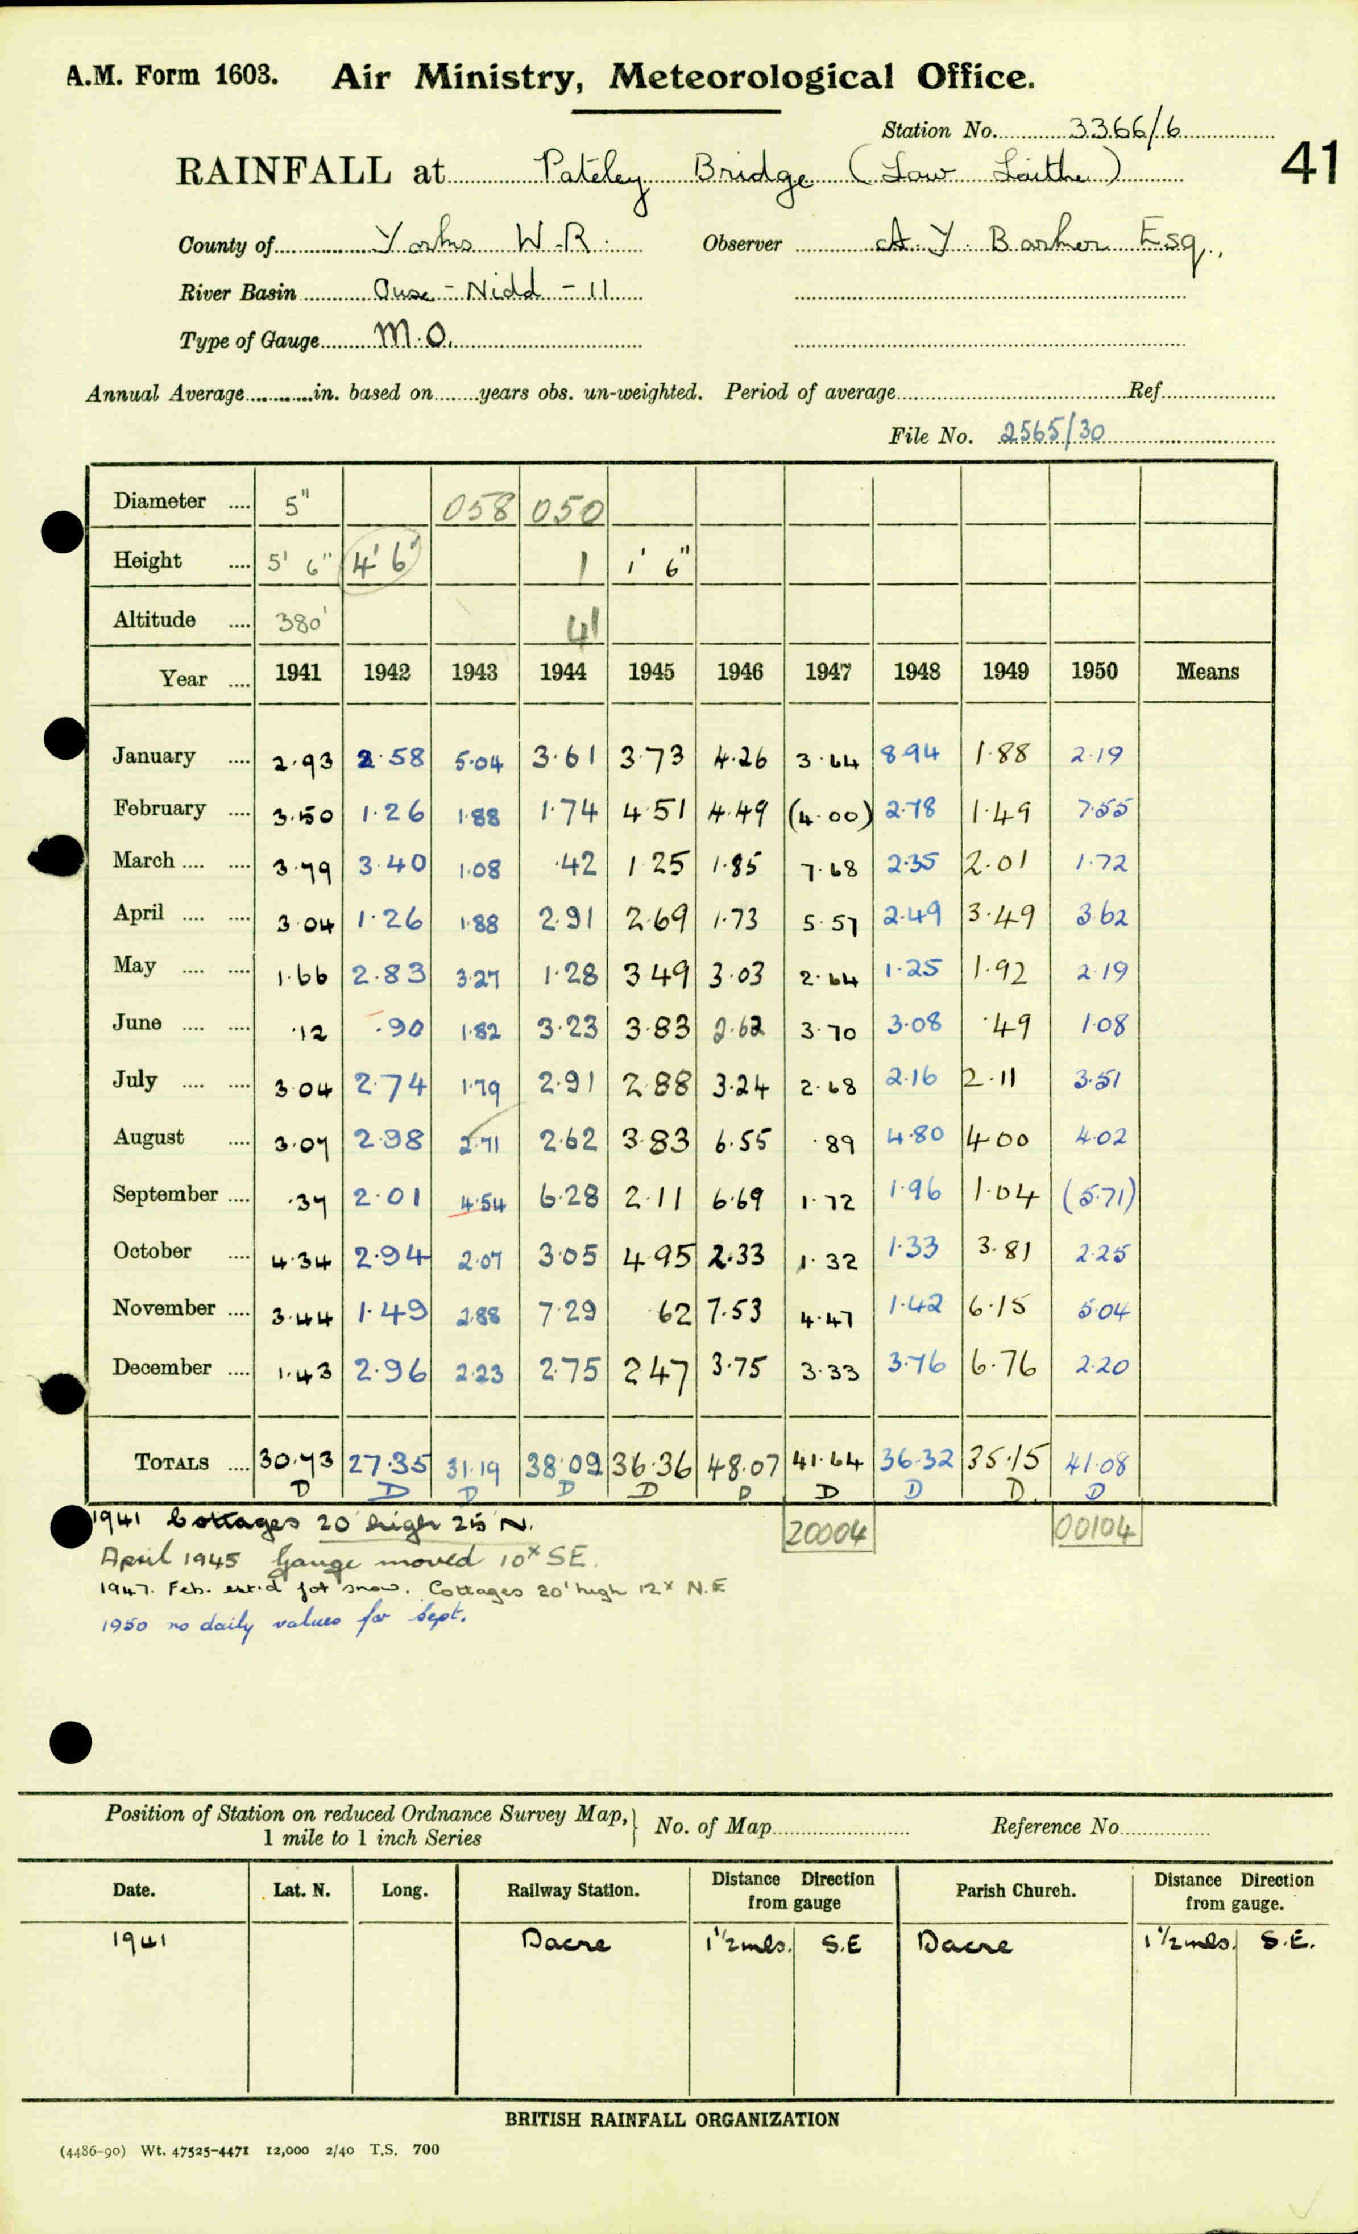 A.M. Form 1603. Air Ministry, Meteorological Office.
Station No. 3366/6
41
RAINFALL at Pateley Bridge (Low Laithe)
County of Yorks W.R. Observer A Y Barker Esq.,
River Basin Ouse - Nidd - 11
Type of Gauge M.O.
Annual Average in. based on years obs. un-weighted. Period of average Ref
File No. 2565/30
Diameter 5" 058 050
Height 5' 6" 4' 6" 1 1' 6"
Altitude 380' 41
Year 1941 1942 1943 1944 1945 1946 1947 1948 1949 1950 Means
January 2.93 2.58 5.04 3.61 3.73 4.26 3.64 8.94 1.88 2.19
February 3.50 1.26 1.88 1.74 4.51 4.49 (4.00) 2.78 1.49 7.55
March 3.79 3.40 1.08 .42 1.25 1.85 7.68 2.35 2.01 1.72
April 3.04 1.26 1.88 2.91 2.69 1.73 5.57 2.49 3.49 3.62
May 1.66 2.83 3.27 1.28 3.49 3.03 2.64 1.25 1.92 2.19
June .12 .90 1.82 3.23 3.83 2.62 3.70 3.08 .49 1.08
July 3.04 2.74 1.79 2.91 2.88 3.24 2.68 2.16 2.11 3.51
August 3.07 2.98 2.71 2.62 3.83 6.55 .89 4.80 4.00 4.02
September .37 2.01 4.54 6.28 2.11 6.69 1.72 1.96 1.04 (5.71)
October 4.34 2.94 2.07 3.05 4.95 2.33 1.32 1.33 3.81 2.25
November 3.44 1.49 2.88 7.29 62 7.53 4.47 1.42 6.15 5.04
December 1.43 2.96 2.23 2.75 2.47 3.75 3.33 3.76 6.76 2.20
TOTALS 30.73 27.35 31.19 38.09 36.36 48.07 41.64 36.32 35.15 41.08
D D D D D D D D D. D
1941 Cottages 20' high 25' N. 20004 00104
April 1945 Gauge moved 10ˣ SE.
1947. Feb. est.d for snow. Cottages 20' high 12ˣ N.E
1950 no daily values for Sept.
Position of Station on reduced Ordnance Survey Map, 1 mile to 1 inch Series } No. of Map Reference No
Date. Lat. N. Long. Railway Station. Distance Direction from gauge Parish Church. Distance Direction from gauge.
1941 Dacre 1½ mls. S.E Dacre 1½ mls. S.E.
BRITISH RAINFALL ORGANIZATION
(4486-90) Wt. 47525-4471 12,000 2/40 T.S. 700